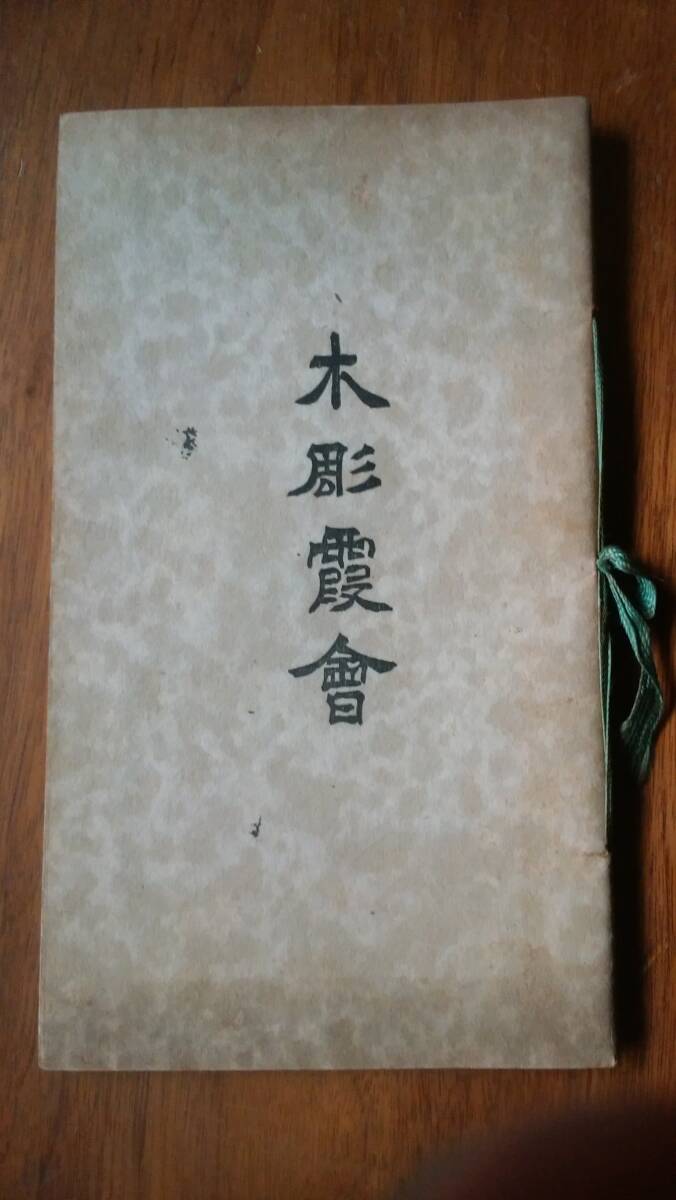 木彫霞會